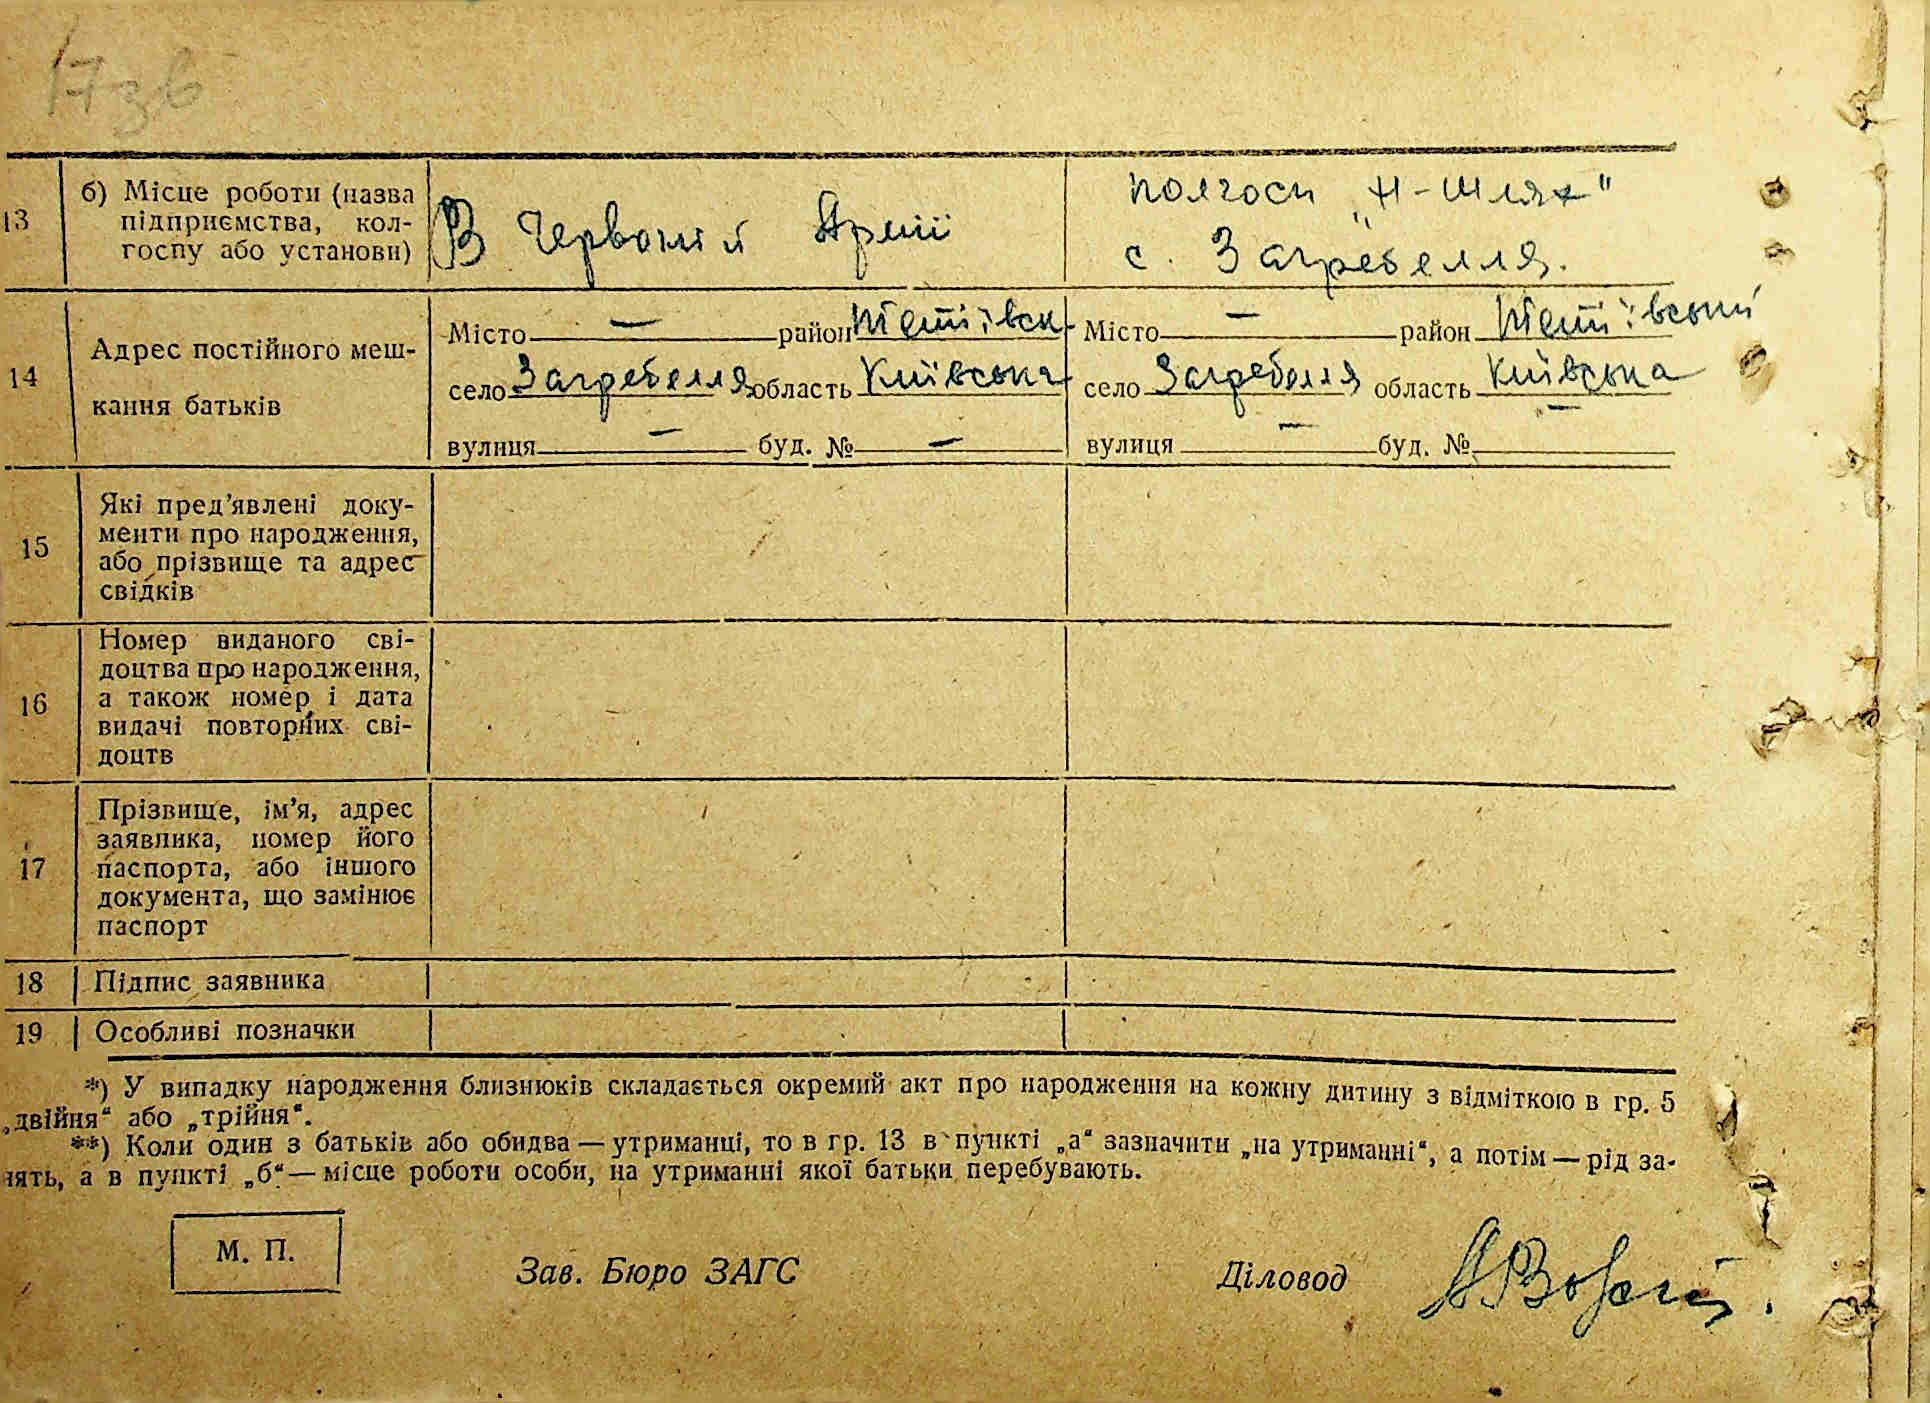 17зв
13 б) Місце роботи (назва
підприємства, кол-
госпу або установи)
В Червоній Армії
колгосп „Н-шлях"
с. Загребелля.
14 Адрес постійного меш-
кання батьків
Місто — район Тетіївськ
село Загребелля область Київська
вулиця — буд. № —
Місто — район Тетіївський
село Загребелля область Київська
вулиця — буд. № —
15 Які пред’явлені доку-
менти про народження,
або прізвище та адрес
свідків
16 Номер виданого сві-
доцтва про народження,
а також номер і дата
видачі повторних сві-
доцтв
17 Прізвище, ім’я, адрес
заявника, номер його
паспорта, або іншого
документа, що замінює
паспорт
18 Підпис заявника
19 Особливі позначки
*) У випадку народження близнюків складається окремий акт про народження на кожну дитину з відміткою в гр. 5
„двійня“ або „трійня“.
**) Коли один з батьків або обидва — утриманці, то в гр. 13 в пункті „а“ зазначити „на утриманні“, а потім — рід за-
нять, а в пункті „б“ — місце роботи особи, на утриманні якої батьки перебувають.
М. П.
Зав. Бюро ЗАГС
Діловод